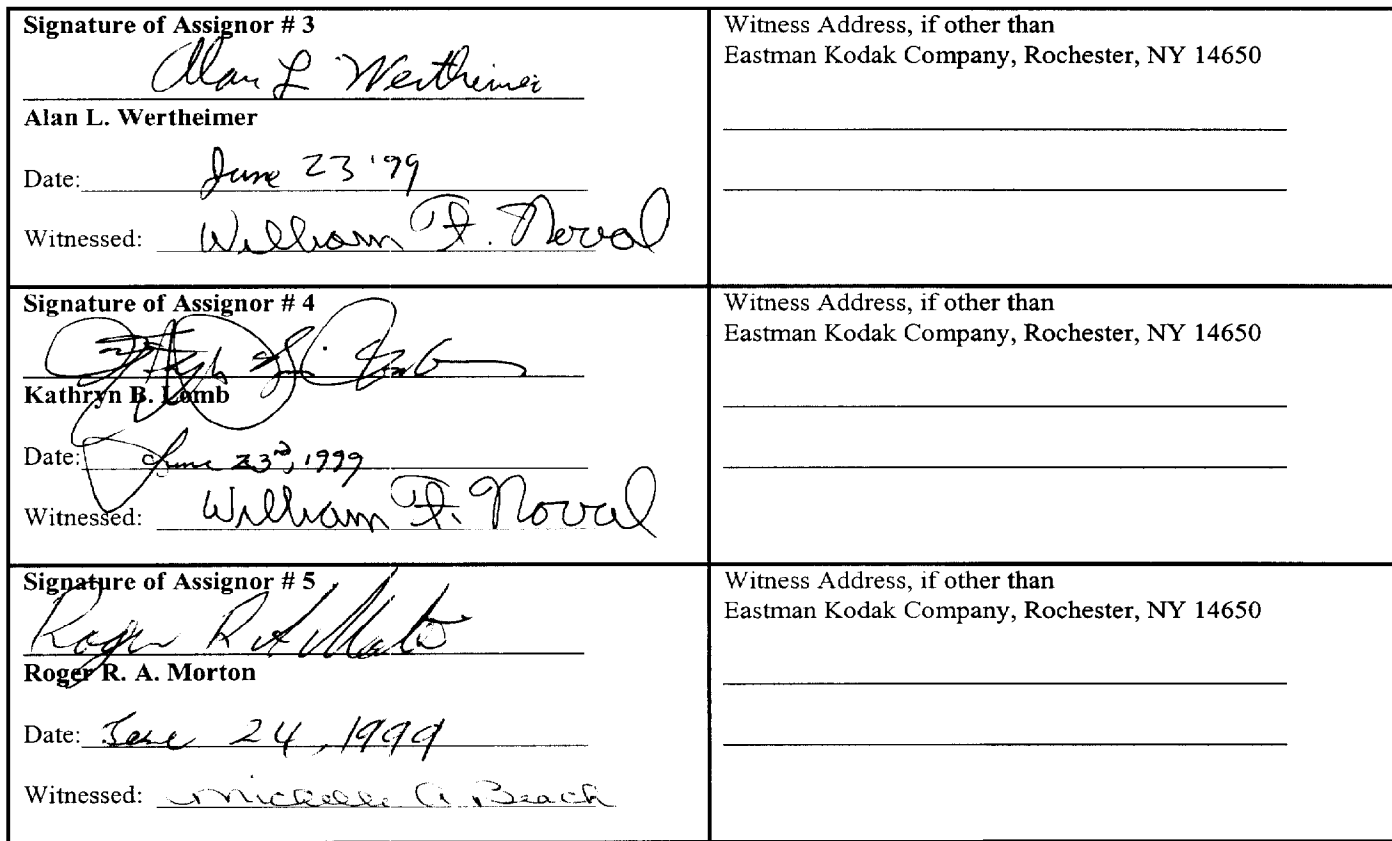 Signature of Assignor # 3
Alan L Wertheimer
Alan L. Wertheimer
Date: June 23 '99
Witnessed: William F. Noval
Witness Address, if other than
Eastman Kodak Company, Rochester, NY 14650
Signature of Assignor # 4
Kathryn B. Lomb
Date: June 23rd, 1999
Witnessed: William F. Noval
Witness Address, if other than
Eastman Kodak Company, Rochester, NY 14650
Signature of Assignor # 5
Roger R A Morton
Roger R. A. Morton
Date: June 24, 1999
Witnessed: Michelle A. Beach
Witness Address, if other than
Eastman Kodak Company, Rochester, NY 14650